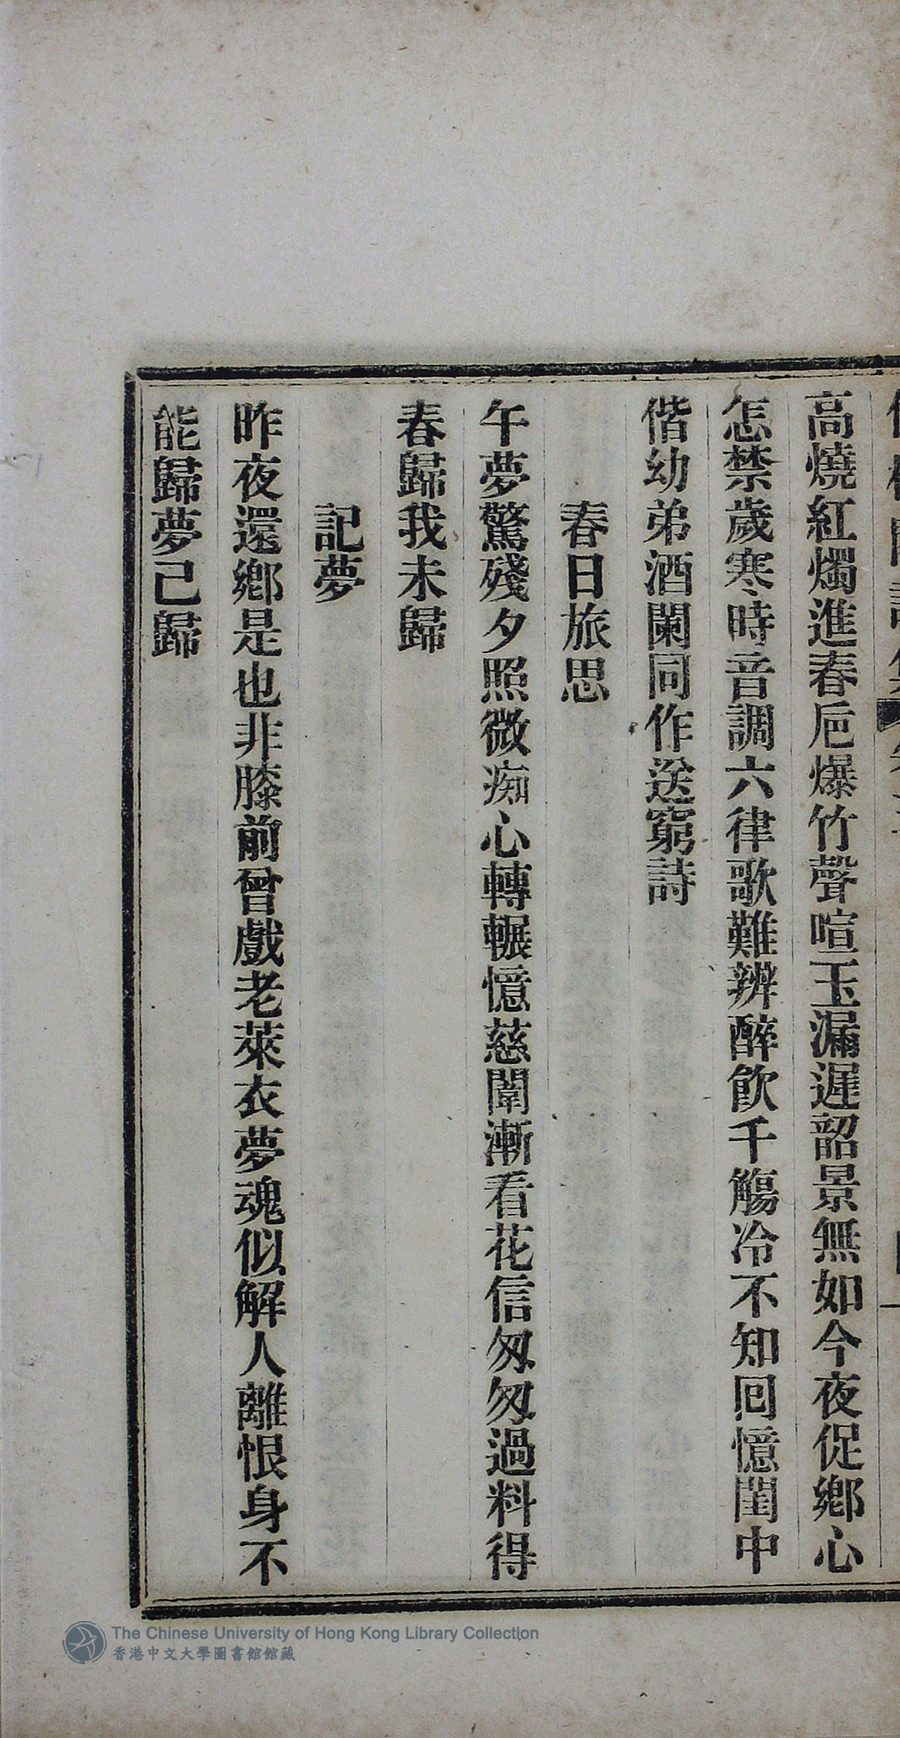 高燒紅燭進春卮爆竹聲喧玉漏遲韶景無如今夜促鄉心
怎禁歲寒時音調六律歌難辨醉飲千觴冷不知囘憶閨中
偕幼弟酒闌同作送窮詩
春日旅思
午夢驚殘夕照微痴心轉輾憶慈闈漸看花信匆匆過料得
春歸我未歸
記夢
昨夜還鄉是也非膝前曾戲老萊衣夢魂似解人離恨身不
能歸夢己歸
The Chinese University of Hong Kong Library Collection
香港中文大學圖書館館藏